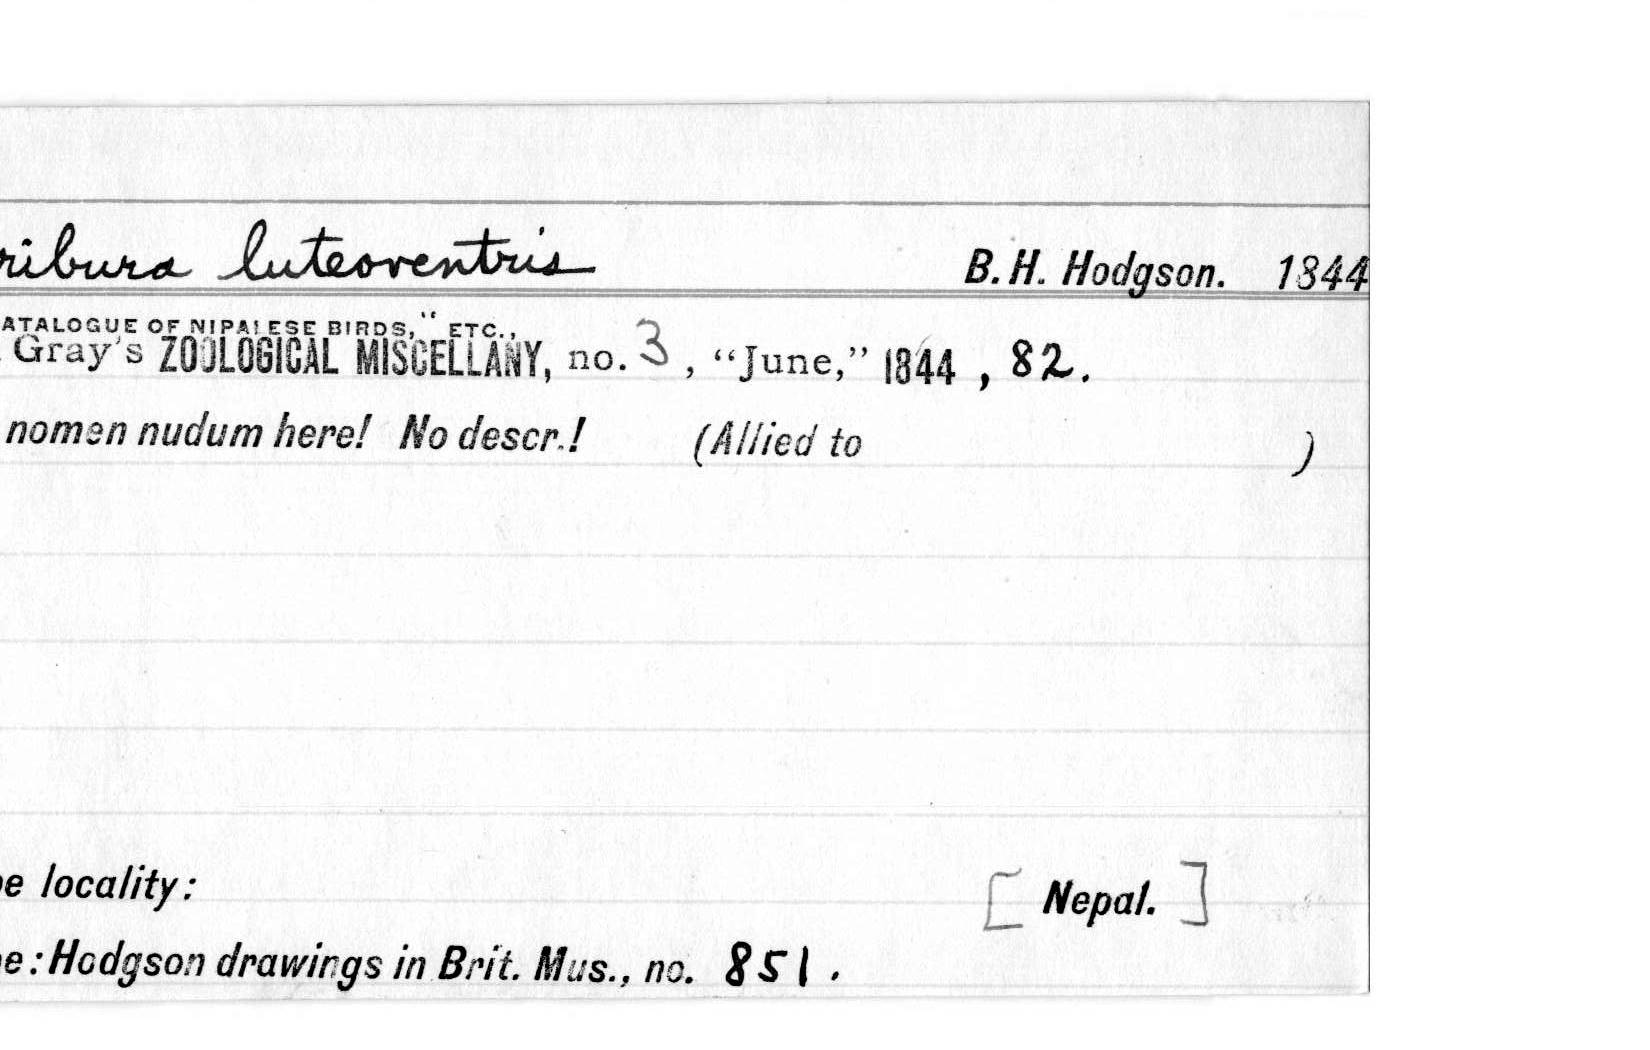 ribura luteoventris B. H. Hodgson. 1844
ATALOGUE OF NIPALESE BIRDS," ETC.,
Gray's ZOOLOGICAL MISCELLANY, no. 3, "June," 1844, 82.
nomen nudum here! No descr.! (Allied to )
pe locality: [Nepal.]
pe: Hodgson drawings in Brit. Mus., no. 851.